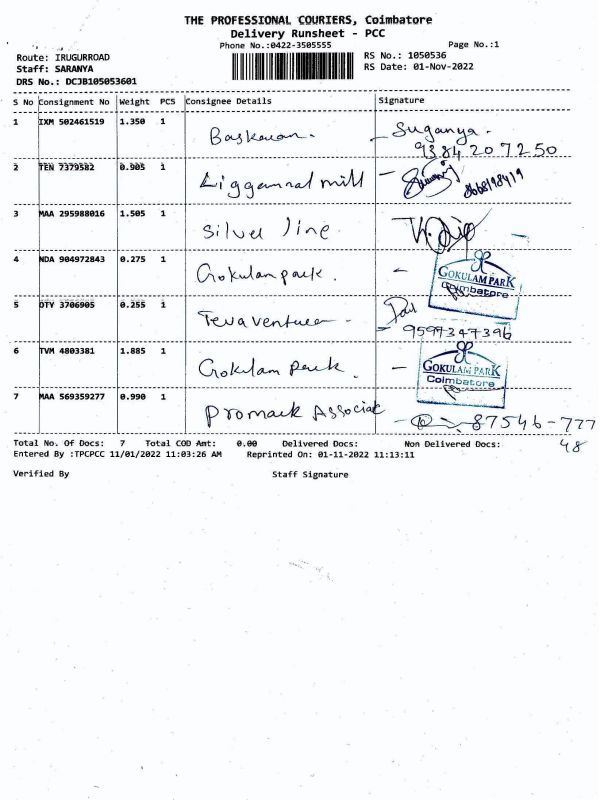 THE PROFESSIONAL COURIERS, Coimbatore
Delivery Runsheet - PCC
Phone No.:0422-3505555
Page No.:1
Route: IRUGURROAD
RS No.: 1050536
Staff: SARANYA
RS Date: 01-Nov-2022
DRS No.: DCJB105053601
S No Consignment No Weight PCS Consignee Details Signature
1 IXM 502461519 1.350 1 Baskaran. - Suganya.
9384207250
2 TEN 7379582 0.905 1 Liggamal mill -
3 MAA 295988016 1.505 1 Silver line
4 NDA 904972843 0.275 1 Gokulam park. - GOKULAM PARK
Coimbatore
5 DTY 3706905 0.255 1 Teva venture -
- 9597347396
6 TVM 4803381 1.885 1 Gokulam Park. - GOKULAM PARK
Coimbatore
7 MAA 569359277 0.990 1 Promark Associat
- 87546-777
48
Total No. Of Docs: 7 Total COD Amt: 0.00 Delivered Docs: Non Delivered Docs:
Entered By :TPCPCC 11/01/2022 11:03:26 AM Reprinted On: 01-11-2022 11:13:11
Verified By Staff Signature